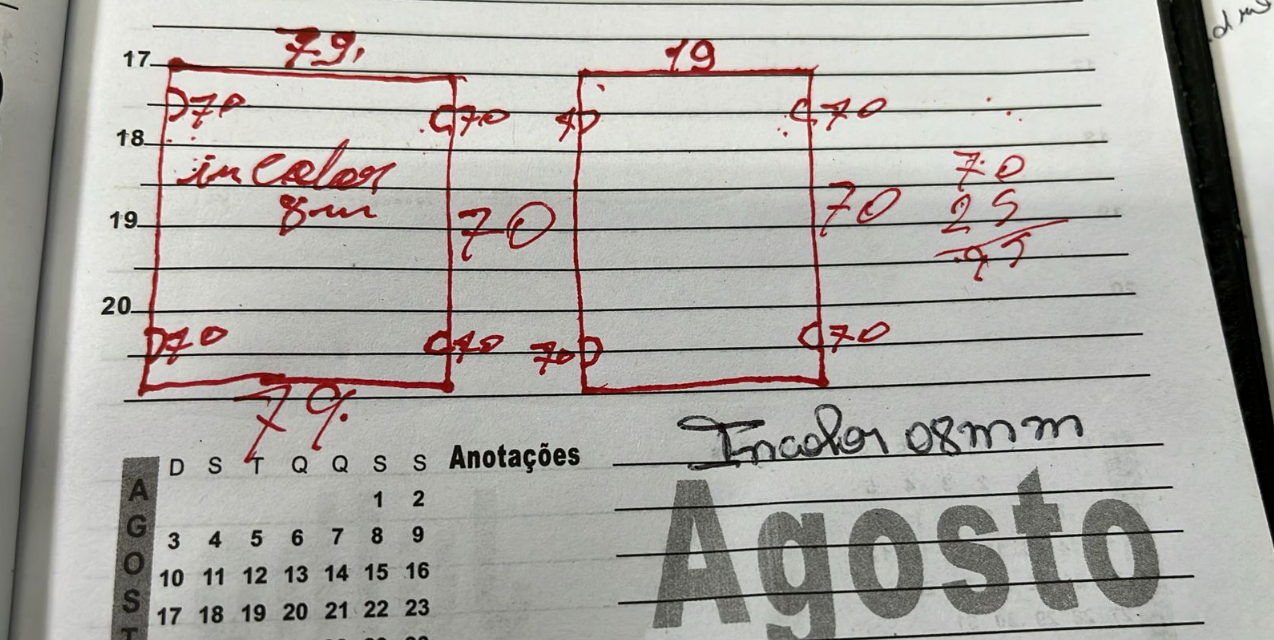 79,
19
17
70
70
70
18
incolor
8m
70
25
95
19
70
70
20
70
70
70
70
79
Incolor 08mm
D S T Q Q S S
Anotações
AGOST
1 2
3 4 5 6 7 8 9
10 11 12 13 14 15 16
17 18 19 20 21 22 23
Agosto